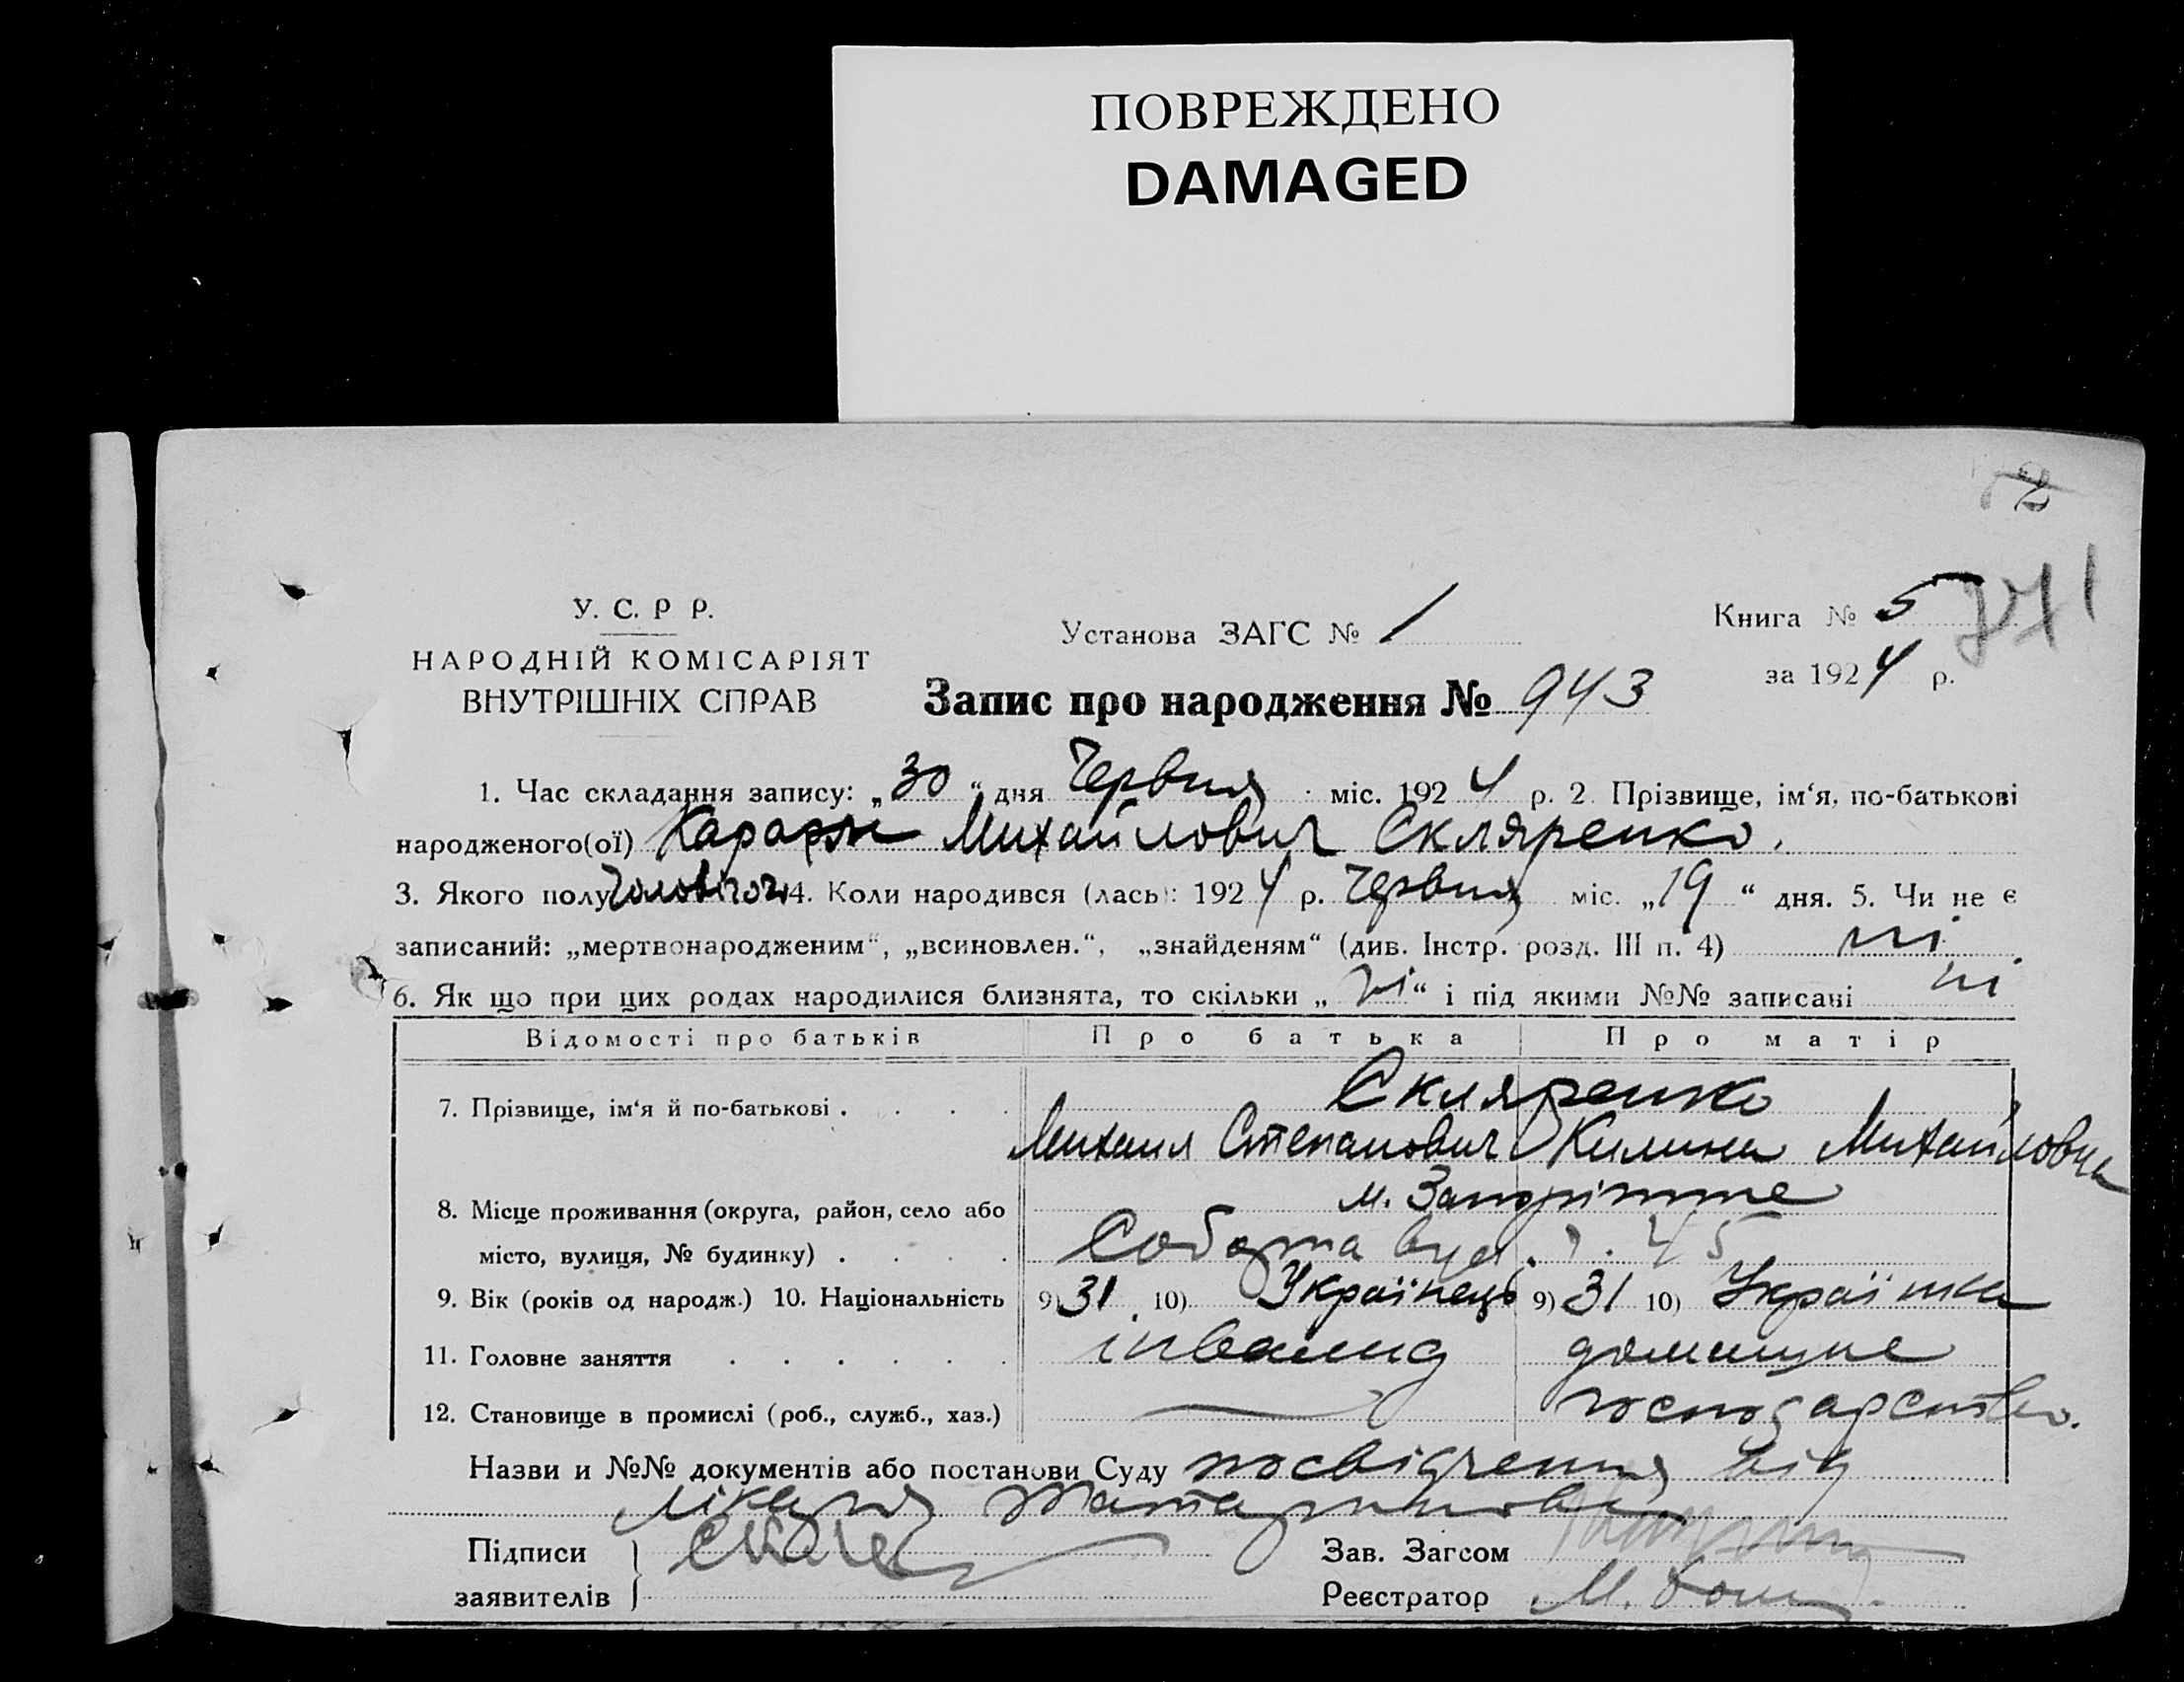 ПОВРЕЖДЕНО
DAMAGED
У. С. Р Р.
НАРОДНІЙ КОМІСАРІЯТ
ВНУТРІШНІХ СПРАВ
Установа ЗАГС № 1
Книга № 5
271
за 1924 р.
Запис про народження № 943
1. Час складання запису: „30“ дня Червня міс. 1924 р. 2. Прізвище, ім‘я, по-батькові
народженого(ої) Михайлович Скляренко.
3. Якого полу чоловічої 4. Коли народився (лась): 1924 р. Червня міс. „19“ дня. 5. Чи не є
записаний: „мертвонародженим“, „всиновлен.“, „знайденям“ (див. Інстр. розд. III п. 4) ні
6. Як що при цих родах народилися близнята, то скільки „ні“ і під якими №№ записані ні
Відомості про батьків Про батька Про матір
7. Прізвище, ім‘я й по-батькові . . . . Скляренко
Михаил Степанович Килина Михайловна
8. Місце проживання (округа, район, село або м. Запоріжже
місто, вулиця, № будинку) . . . . вул. 45
9. Вік (років од народж.) 10. Національність 9) 31 10) Українець 9) 31 10) Українка
11. Головне заняття . . . . . . інвалид домашне
12. Становище в промислі (роб., служб., хаз.) — господарство.
Назви и №№ документів або постанови Суду посвідчення від
лікаря
Підписи
заявителів
Зав. Загсом
Реєстратор М.